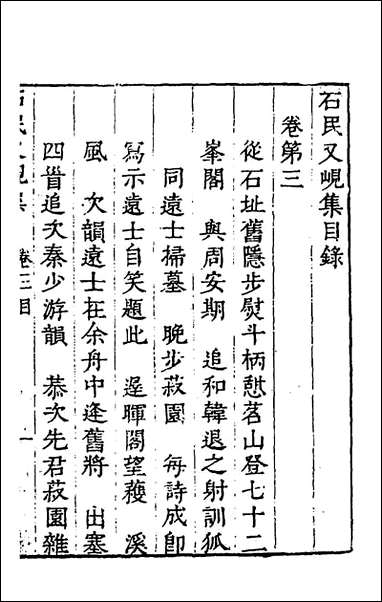 石民又峴集目錄
卷第三
從石址舊隱步熨斗柄憩茗山登七十二
峯閣　與周安期　追和韓退之射訓狐
同遠士掃墓　晚步菽園　每詩成卽
寫示遠士自笑題此　逞暉閣望薐　溪
風　次韻遠士在余舟中逢舊將　出塞
四首追次秦少游韻　恭次先君菽園雜
石民又峴集　卷三目　一